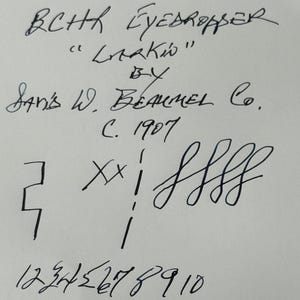 BCHR EYEDROPPER
"LARKIN"
BY
W. BEAUMEL CO.
C. 1907
XX
1 2 3 4 5 6 7 8 9 10